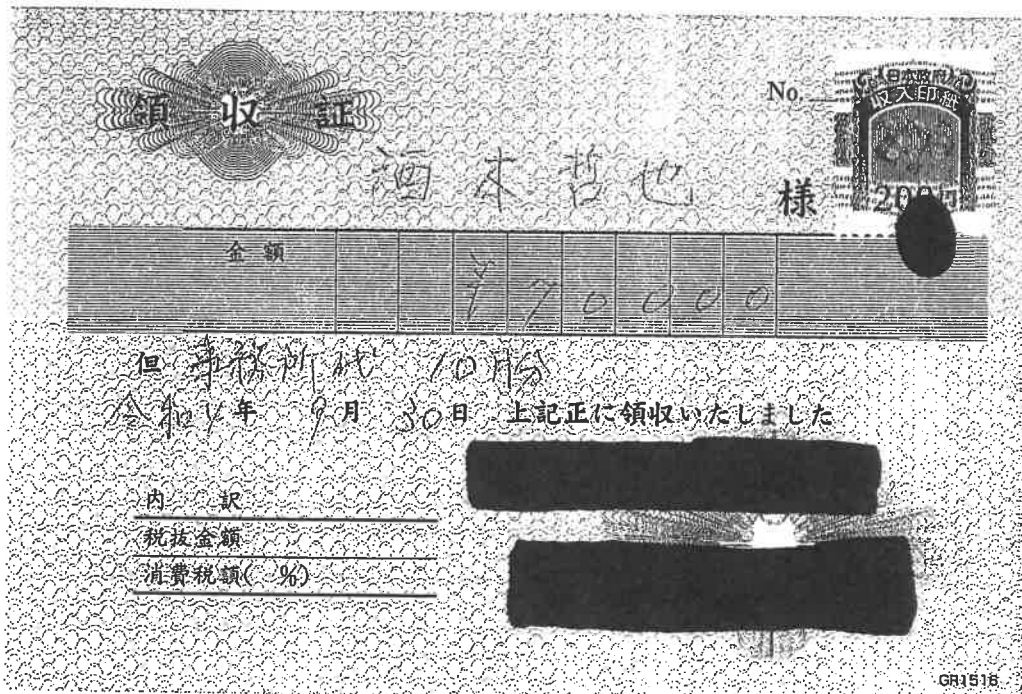 領収証
No.
日本政府
収入印紙
200円
酒木哲也 様
金額
¥70000
但 事務所代 10月分
令和4年 9月 30日 上記正に領収いたしました
内訳
税抜金額
消費税額( %)
GR1516